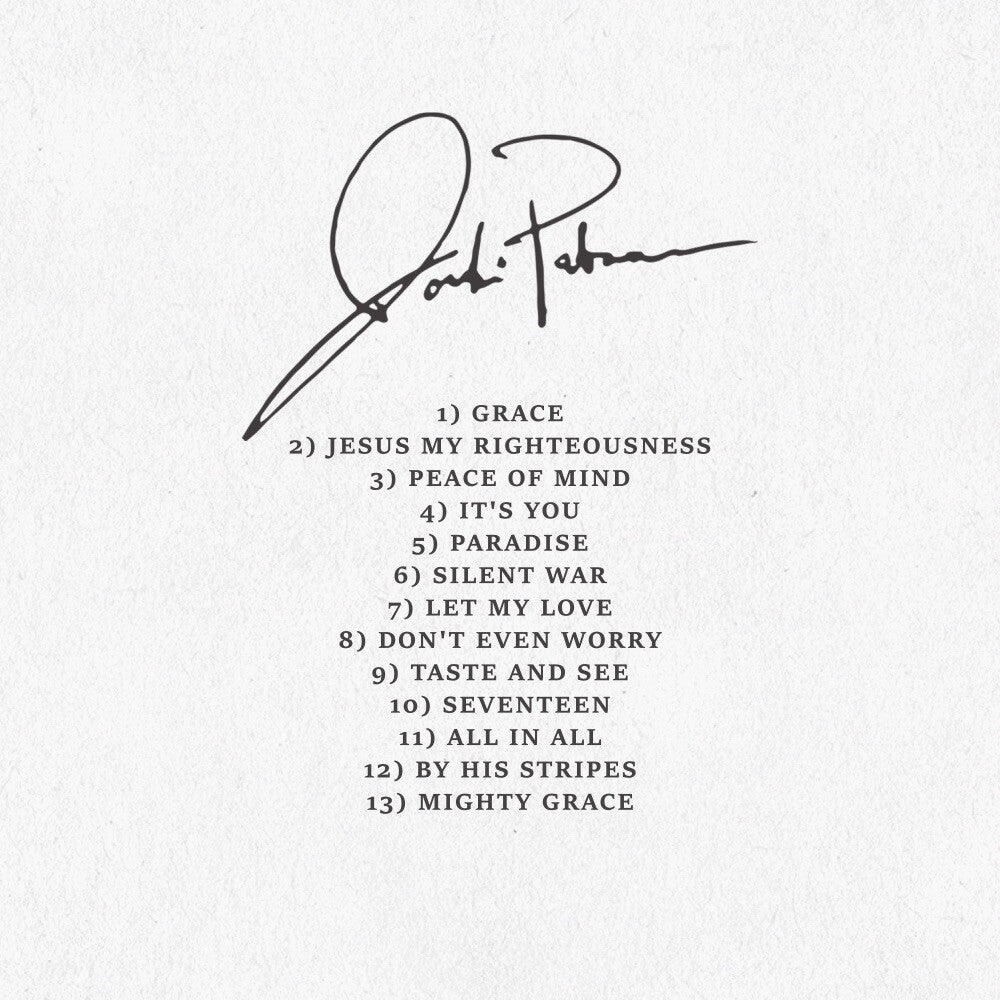 1) GRACE
2) JESUS MY RIGHTEOUSNESS
3) PEACE OF MIND
4) IT'S YOU
5) PARADISE
6) SILENT WAR
7) LET MY LOVE
8) DON'T EVEN WORRY
9) TASTE AND SEE
10) SEVENTEEN
11) ALL IN ALL
12) BY HIS STRIPES
13) MIGHTY GRACE